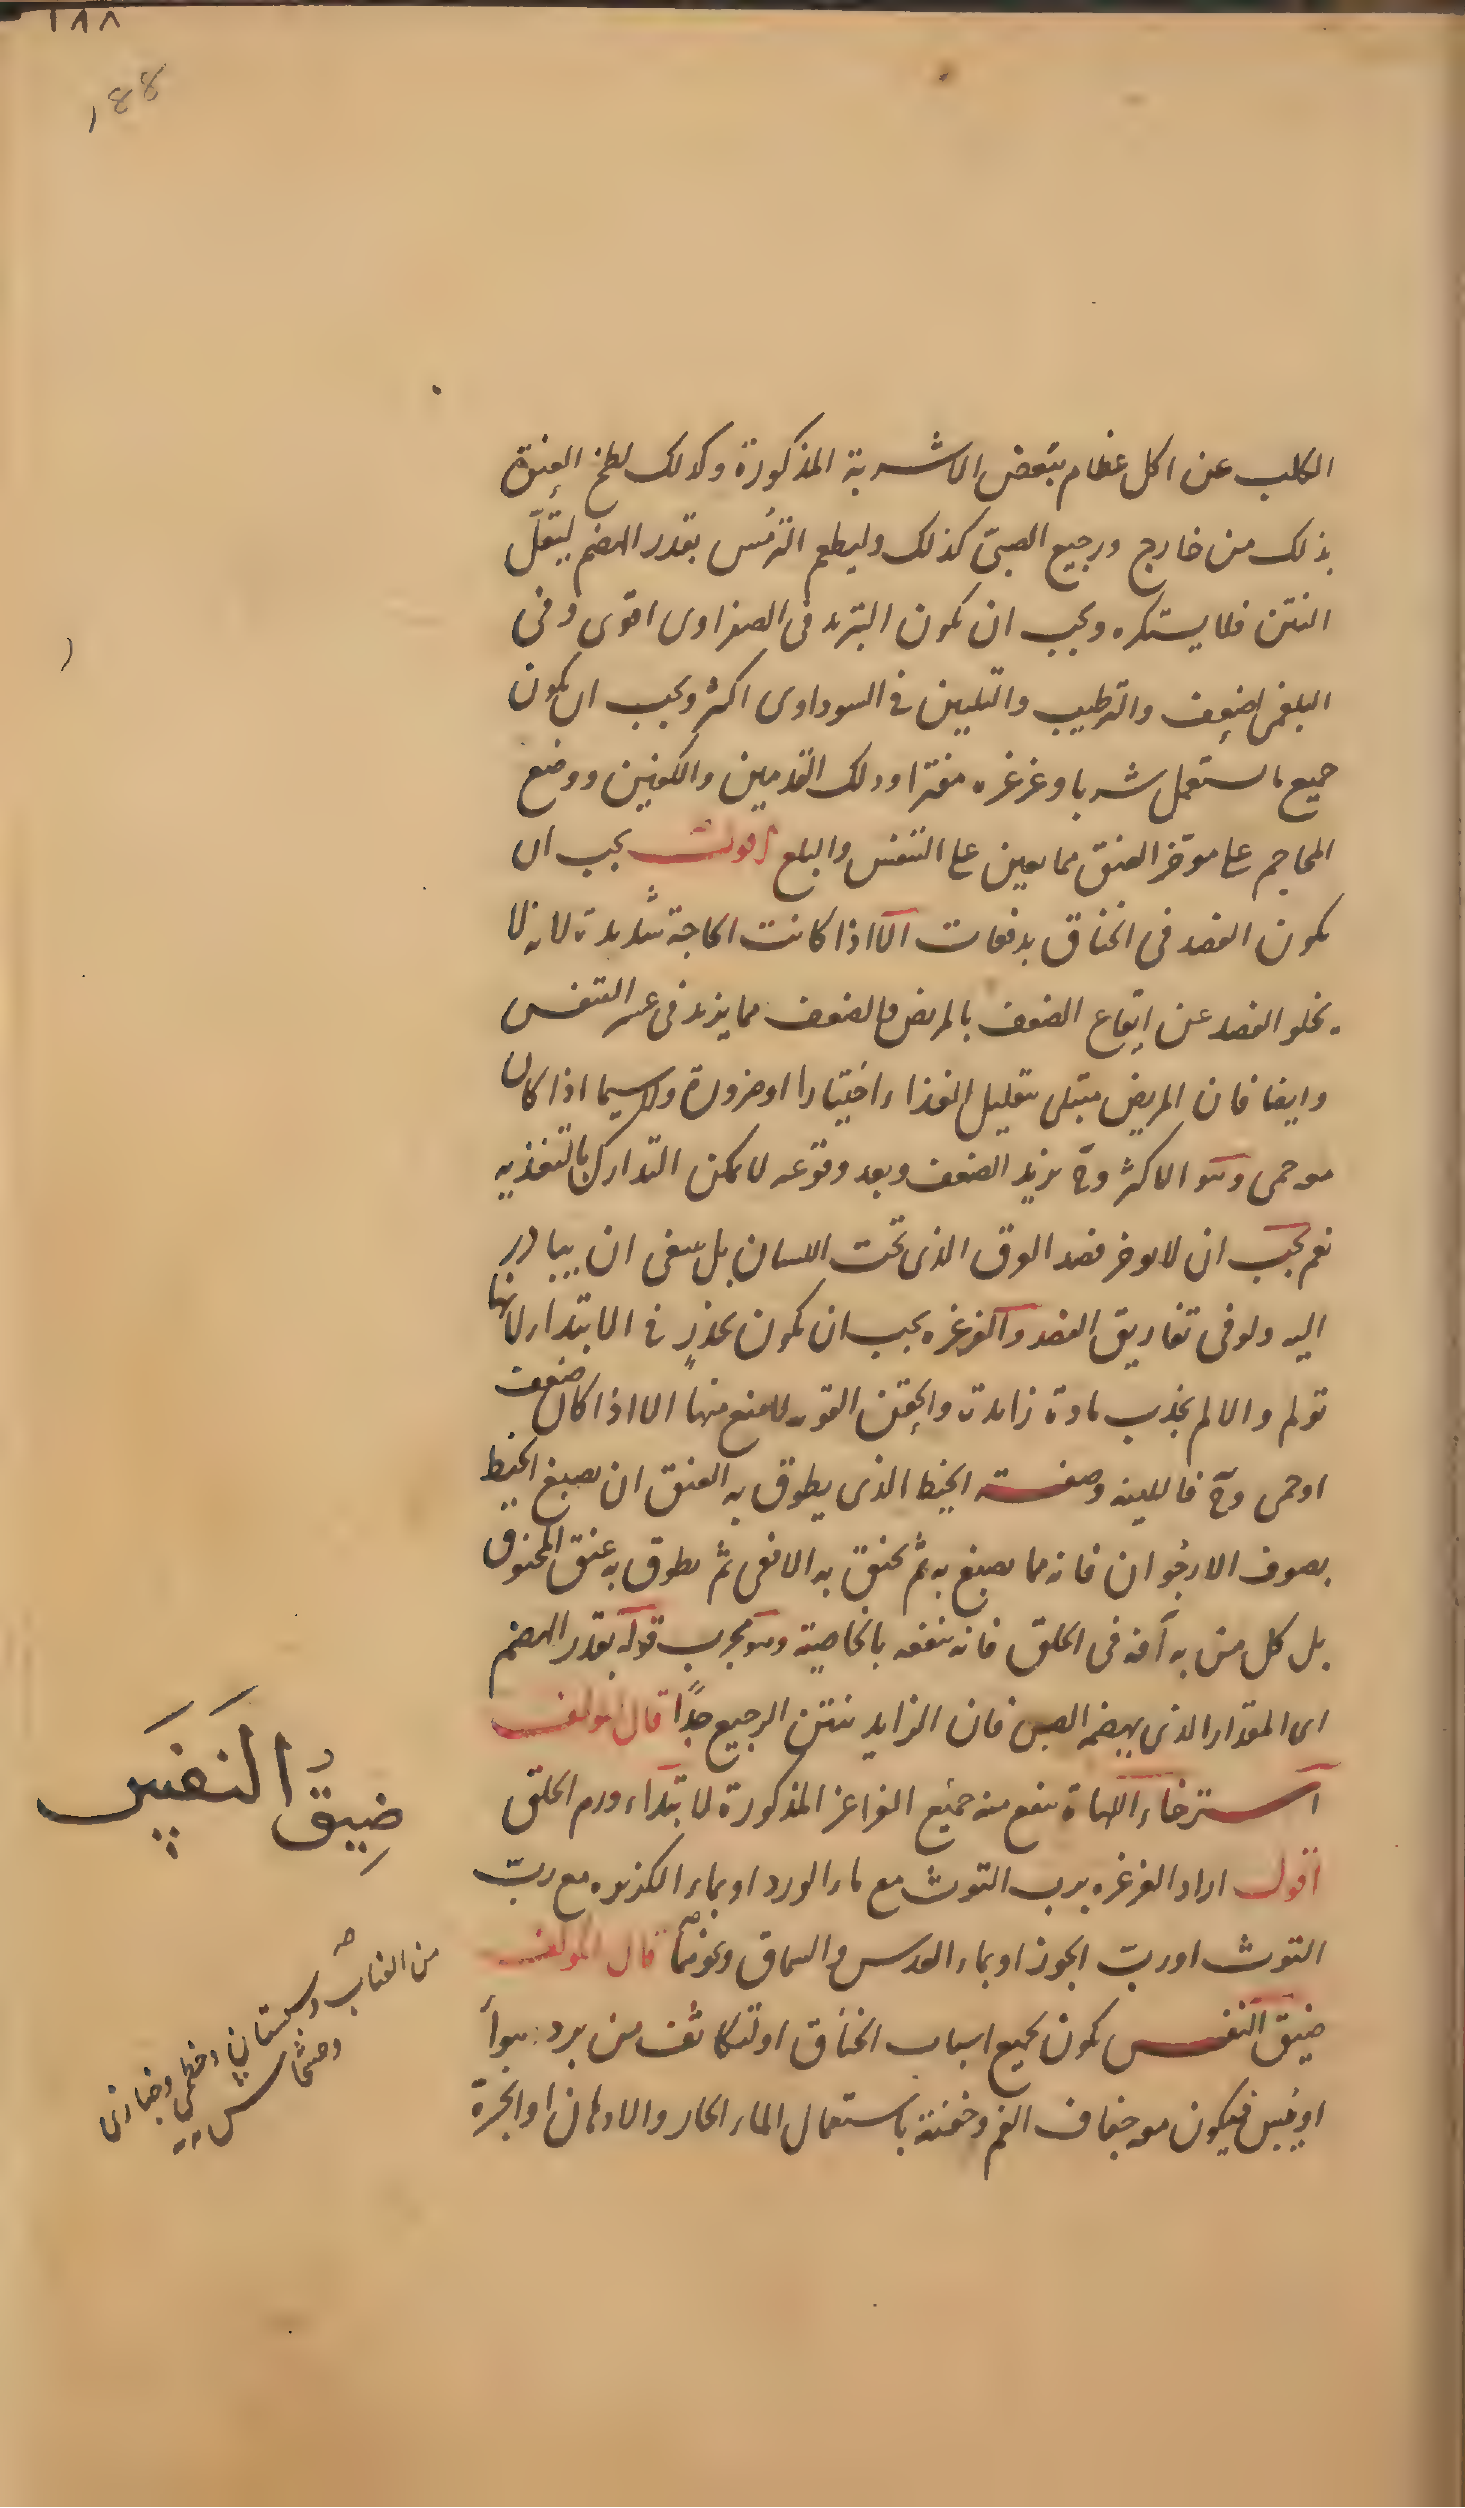 ١٨٨
188
الكلب عن اكل عظام ببعض الاشربة المذكورة وكذلك لطخ العنق
بذلك من خارج ورجيع الصبى كذلك وليطعم الترمس بقدر الهضم ليقل
النتن فلا يستكره ويجب ان يكون التبريد فى الصفراوى اقوى وفى
البلغمى اضعف والترطيب والتليين فى السوداوى اكثر ويجب ان يكون
جميع ما يستعمل شربا وغرغره مفترا ودلك القدمين والكفين ووضع
المحاجم على موخر العنق مما يعين على التنفس والبلع اقول يجب ان
يكون الفصد فى الخناق بدفعات الا اذا كانت الحاجة شديدة لانه لا
يخلو الفصد عن ايقاع الضعف بالمريض والضعف مما يزيد فى عسر التنفس
وايضا فان المريض مبتلى بتقليل الغذاء اختيارا او ضرورة ولا سيما اذا كان
معه حمى وهو الاكثر وح يزيد الضعف وبعد وقوعه لا يمكن التدارك بالتغذيه
نعم يجب ان لا يوخر فصد العرق الذى تحت اللسان بل ينبغى ان يبادر
اليه ولو فى تفاريق الفصد والغرغره يجب ان يكون بحذر فى الابتداء لانها
تولم والالم يجذب مادة زايدة والحقن القويه لا يمنع منها الا اذا كان ضعف
او حمى وح فاللينه وصفة الخيط الذى يطوق به العنق ان يصبغ الخيط
بصوف الارجوان فانه مما يصبغ به ثم يخنق به الافعى ثم يطوق به عنق المخنوق
بل كل من به آفه فى الحلق فانه ينفعه بالخاصية وهو مجرب قوله بقدر الهضم
اى المقدار الذى يهضمه الصبى فان الزايد ينتن الرجيع جدًا قال المولف
استرخاء اللهاة ينفع منه جميع الغراغر المذكورة لابتداء ورم الحلق
اقول اراد الغرغره برب التوث مع ماء الورد او بماء الكزبره مع ربّ
التوث او ربّ الجوز او بماء العدس والسماق ونحوهما قال المولف
ضيق النفس يكون لجميع اسباب الخناق او لتكاثف من برد هوآ
او يبس فيكون معه جفاف الفم وخفته باستعمال الماء الحار والادهان او ابخرة
ضِيقُ النَفَسِ
من العناب وسبستان وخطمى وخبازى
وخشخاش